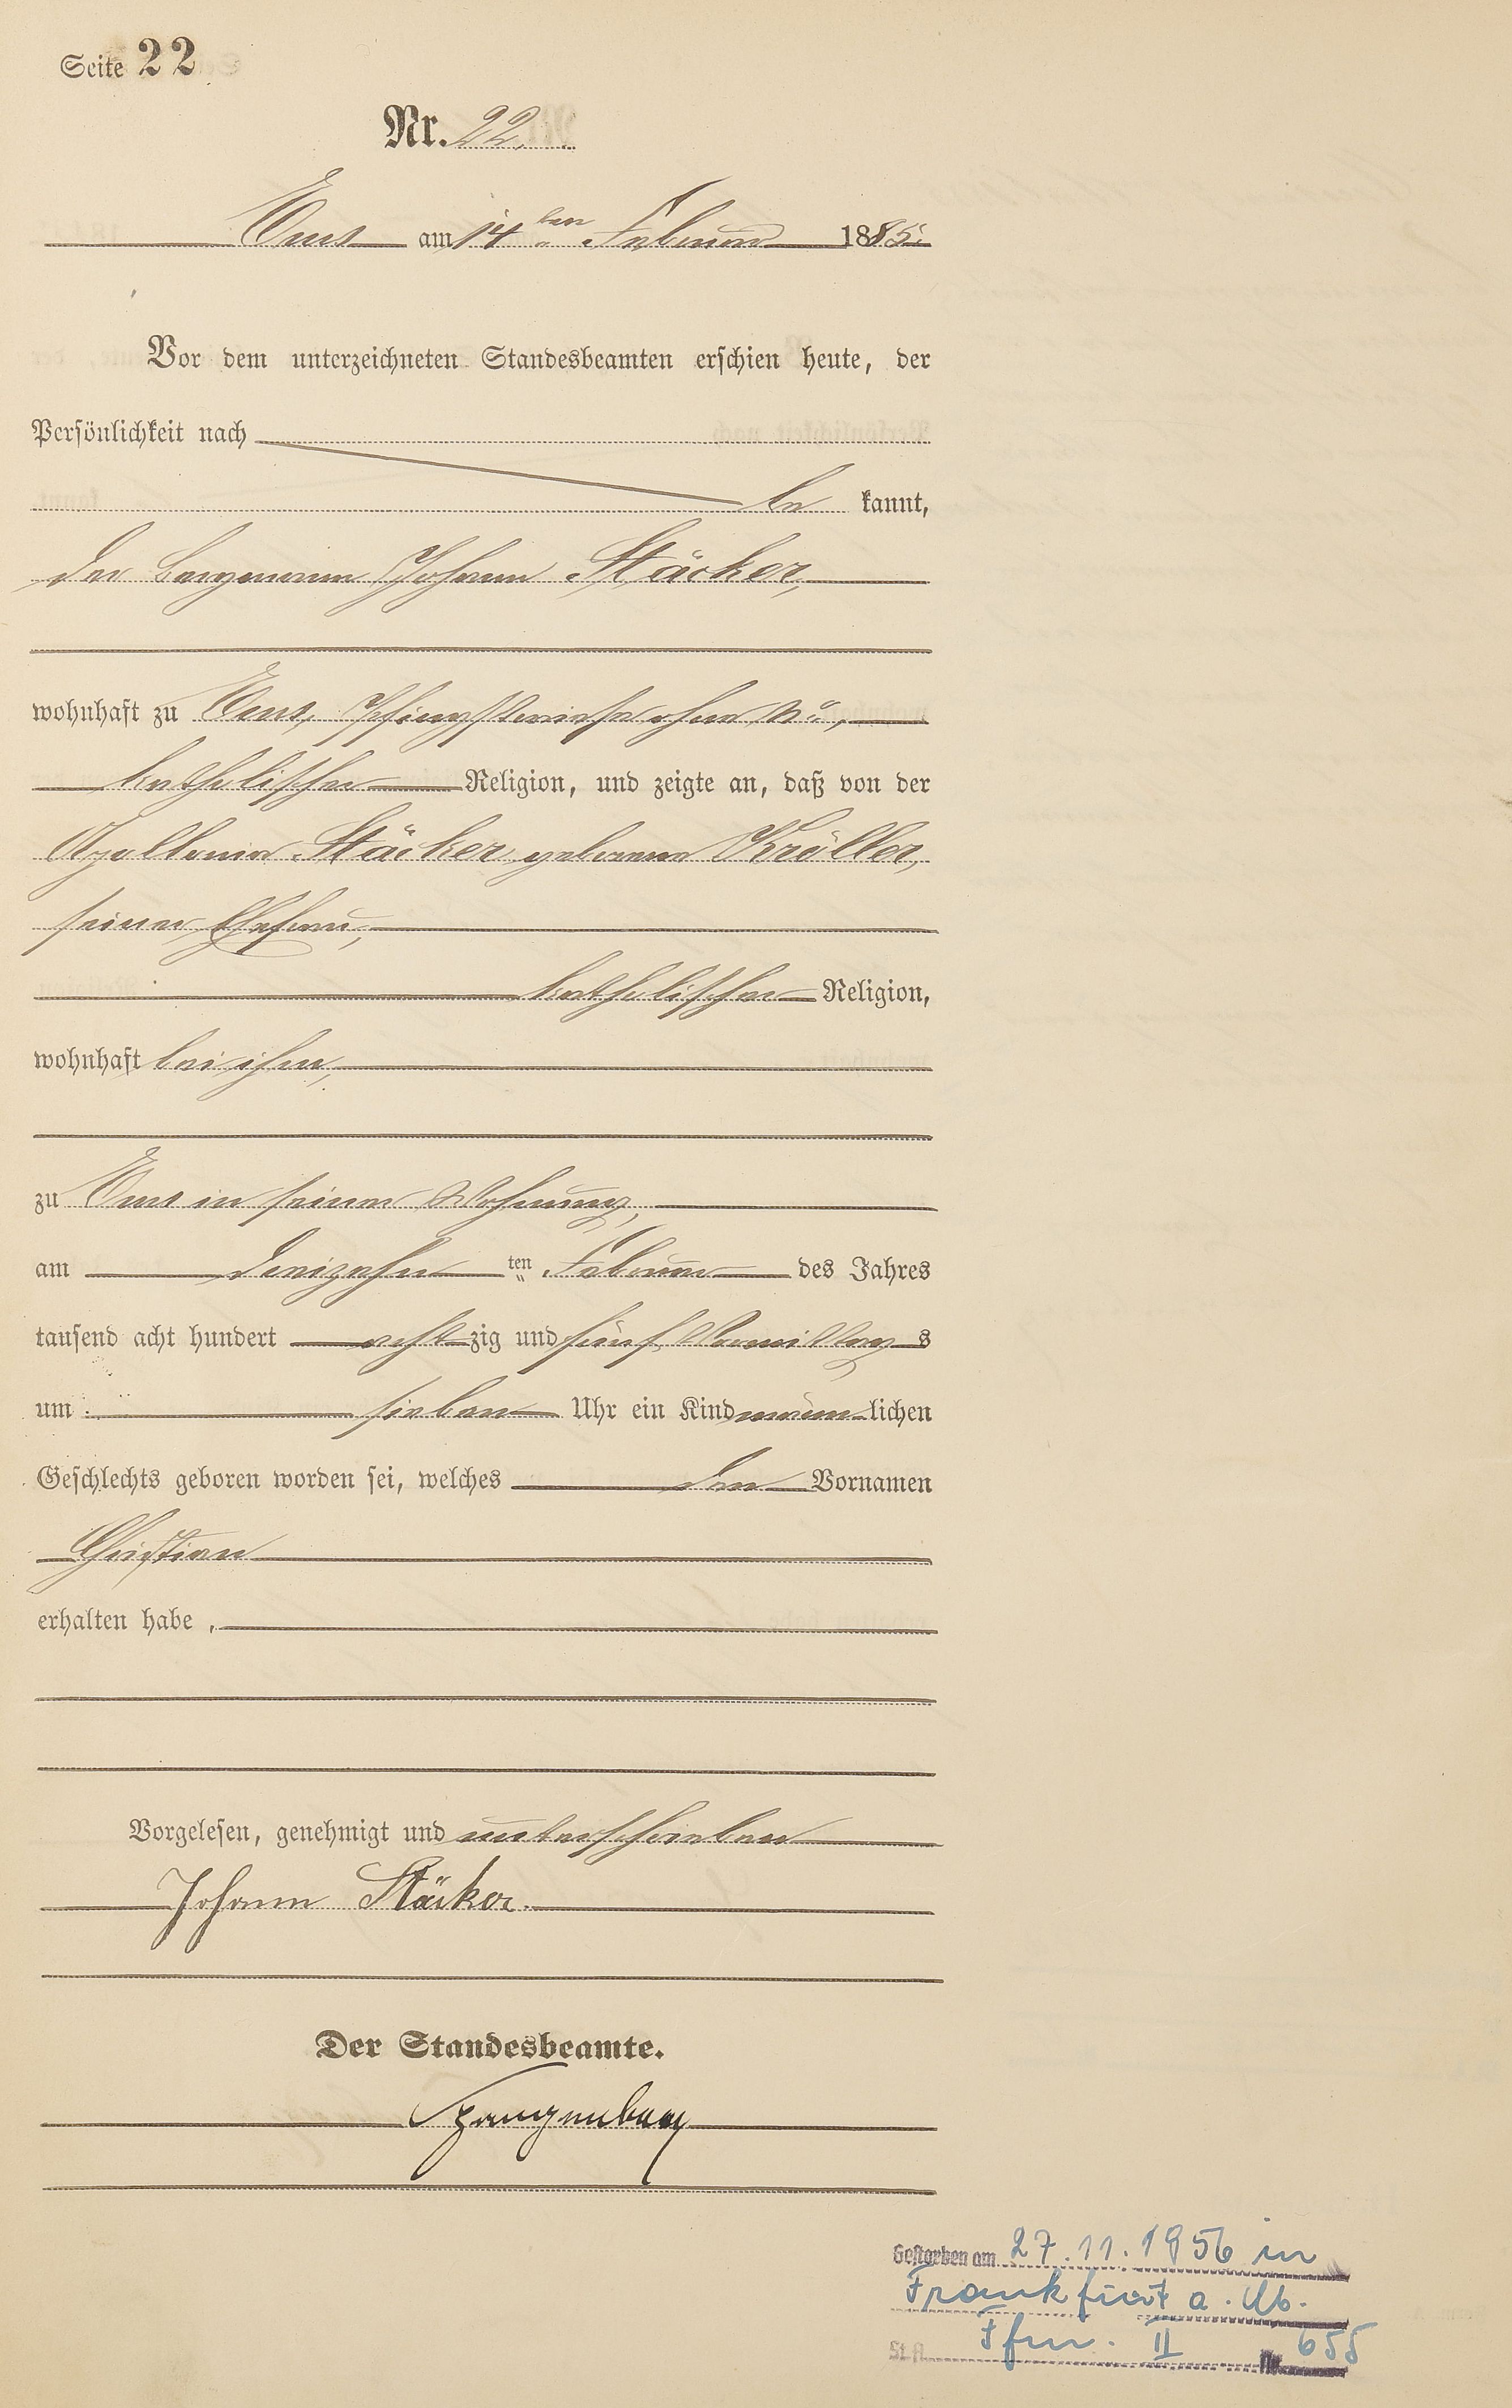 Seite 22
Nr. 22.
Ems am 14ten Februar 1885.
Vor dem unterzeichneten Standesbeamten erschien heute, der
Persönlichkeit nach
be kannt,
der Bergmann Johann Stäcker,
wohnhaft zu Ems, Pfingstwiese ohne No.,
katholischer Religion, und zeigte an, daß von der
Apollonia Stäcker geborene Kröller,
seiner Ehefrau,
katholischer Religion,
wohnhaft bei ihm,
zu Ems in seiner Wohnung,
am dreizehn ten Februar des Jahres
tausend acht hundert acht zig und fünf Vormittag s
um sieben Uhr ein Kind männ lichen
Geschlechts geboren worden sei, welches den Vornamen
Christian
erhalten habe.
Vorgelesen, genehmigt und unterschrieben
Johann Stäcker.
Der Standesbeamte.
Spangenberg
Gestorben am 27.11.1956 in
Frankfurt a. M.
St.A. Ffm. II Nr. 655